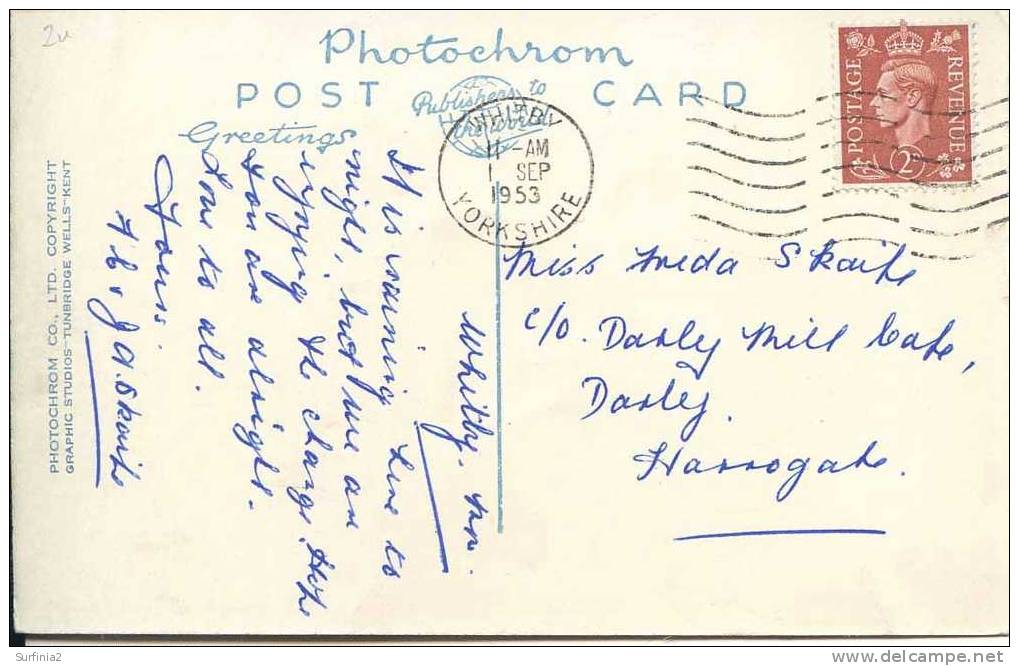 2v
Photochrom
POST CARD
Publishers to
the World
Greetings
WHITBY
11 - AM
1 SEP
1953
YORKSHIRE
POSTAGE
REVENUE
2D
Whitby.
It is raining here to
night, but we are
enjoying the change. Hope
you are alright.
Love to all.
Yours.
J A. Skaife
Miss Freda Skaife
c/o. Darley Mill Cafe,
Darley.
Harrogate.
PHOTOCHROM CO., LTD. COPYRIGHT
GRAPHIC STUDIOS-TUNBRIDGE WELLS-KENT
Surfinia2
delcampe.net